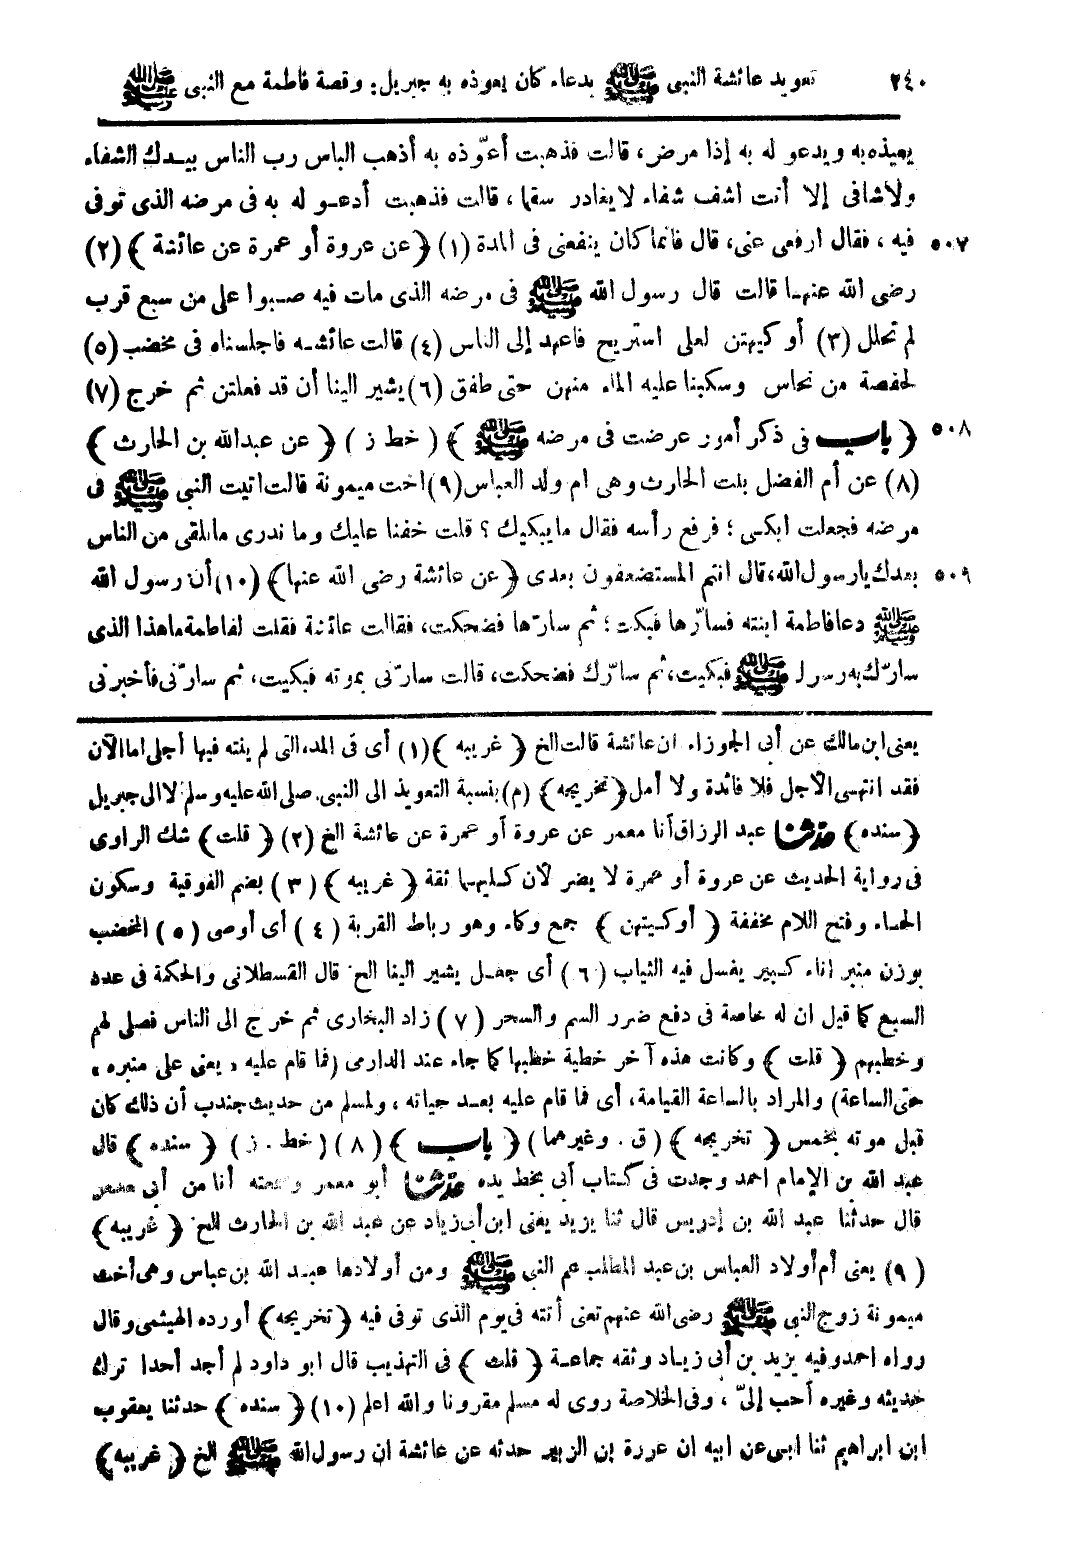 ٢٤٠ تعويذ عائشة النبى ﷺ بدعاء كان يعوذه به جبريل: وقصة فاطمة مع النبى ﷺ
يعيذه به ويدعو له به إذا مرض، قالت فذهبت أعوّذه به أذهب الباس رب الناس بيدك الشفاء
ولاشافى إلا أنت اشف شفاء لايغادر سقما، قالت فذهبت أدعو له به فى مرضه الذى توفى
٥٠٧ فيه، فقال ارفعى عنى، قال فانما كان ينفعنى فى المدة (١) ﴿عن عروة أو عمرة عن عائشة﴾ (٢)
رضى الله عنها قالت قال رسول الله ﷺ فى مرضه الذى مات فيه صبوا على من سبع قرب
لم تحلل (٣) أوكيتهن لعلى استريح فاعهد إلى الناس (٤) قالت عائشة فاجلسناه فى مخضب (٥)
لحفصة من نحاس وسكبنا عليه الماء منهن حتى طفق (٦) يشير الينا أن قد فعلتن ثم خرج (٧)
٥٠٨ ﴿باب فى ذكر أمور عرضت فى مرضه ﷺ﴾ (خط ز) ﴿عن عبدالله بن الحارث﴾
(٨) عن أم الفضل بنت الحارث وهى ام ولد العباس (٩) اخت ميمونة قالت اتيت النبى ﷺ فى
مرضه فجعلت ابكى؛ فرفع رأسه فقال مايبكيك؟ قلت خفنا عليك وما ندرى مانلقى من الناس
٥٠٩ بعدك يارسول الله، قال انتم المستضعفون بعدى ﴿عن عائشة رضى الله عنها﴾ (١٠) أن رسول الله
ﷺ دعا فاطمة ابنته فسارّها فبكت؛ ثم سارّها فضحكت، فقالت عائشة فقلت لفاطمة ماهذا الذى
سارّك به رسول ﷺ فبكيت، ثم سارّك فضحكت، قالت سارّنى بموته فبكيت، ثم سارّنى فأخبرنى
يعنى ابن مالك عن أبى الجوزاء ان عائشة قالت الخ ﴿غريبه﴾ (١) أى فى المدة التى لم ينته فيها أجلى اما الآن
فقد انتهى الأجل فلا فائدة ولا أمل ﴿تخريجه﴾ (م) بنسبة التعويذ الى النبى صلى الله عليه وسلم لا الى جبريل
﴿سنده﴾ حدثنا عبد الرزاق أنا معمر عن عروة أو عمرة عن عائشة الخ (٢) ﴿قلت﴾ شك الراوى
فى رواية الحديث عن عروة أو عمرة لا يضر لأن كليهما ثقة ﴿غريبه﴾ (٣) بضم الفوقية وسكون
الحاء وفتح اللام مخففة ﴿أوكيتهن﴾ جمع وكاء وهو رباط القربة (٤) أى أوصى (٥) المخضب
بوزن منبر اناء كبير يغسل فيه الثياب (٦) أى جعل يشير الينا الخ قال القسطلانى والحكمة فى عدد
السبع كما قيل ان له خاصة فى دفع ضرر السم والسحر (٧) زاد البخارى ثم خرج الى الناس فصلى لهم
وخطبهم ﴿قلت﴾ وكانت هذه آخر خطبة خطبها كما جاء عند الدارمى (فما قام عليه، يعنى على منبره،
حتى الساعة) والمراد بالساعة القيامة، أى فما قام عليه بعد حياته، ولمسلم من حديث جندب أن ذلك كان
قبل موته بخمس ﴿تخريجه﴾ (ق. وغيرهما) ﴿باب﴾ (٨) (خط. ز) ﴿سنده﴾ قال
عبد الله بن الإمام احمد وجدت فى كتاب أبى بخط يده حدثنا أبو معمر وسمعته أنا من أبى معمر
قال حدثنا عبد الله بن إدريس قال ثنا يزيد يعنى ابن أبى زياد عن عبد الله بن الحارث الخ ﴿غريبه﴾
(٩) يعنى أم أولاد العباس بن عبد المطلب عم النبى ﷺ ومن أولادها عبد الله بن عباس وهى أخت
ميمونة زوج النبى ﷺ رضى الله عنهم تعنى أنته فى يوم الذى توفى فيه ﴿تخريجه﴾ أورده الهيثمى وقال
رواه احمد وفيه يزيد بن أبى زياد وثقه جماعة ﴿قلت﴾ فى التهذيب قال ابو داود لم أجد أحدا ترك
حديثه وغيره أحب إلىّ، وفى الخلاصة روى له مسلم مقرونا والله اعلم (١٠) ﴿سنده﴾ حدثنا يعقوب
ابن ابراهيم ثنا ابى عن ابيه ان عروة بن الزبير حدثه عن عائشة ان رسول الله ﷺ الخ ﴿غريبه﴾